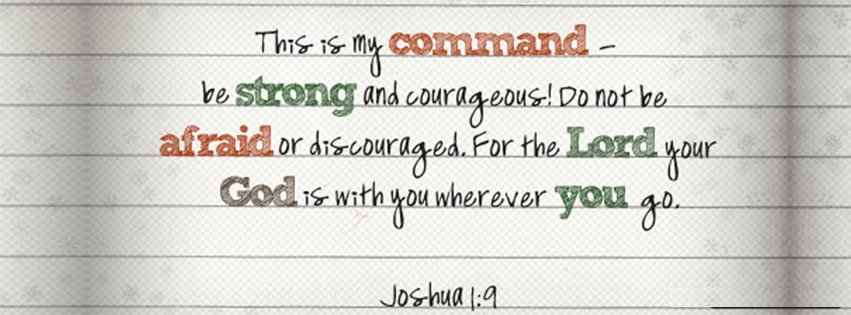 This is my command –
be strong and courageous! Do not be
afraid or discouraged. For the Lord your
God is with you wherever you go.
Joshua 1:9